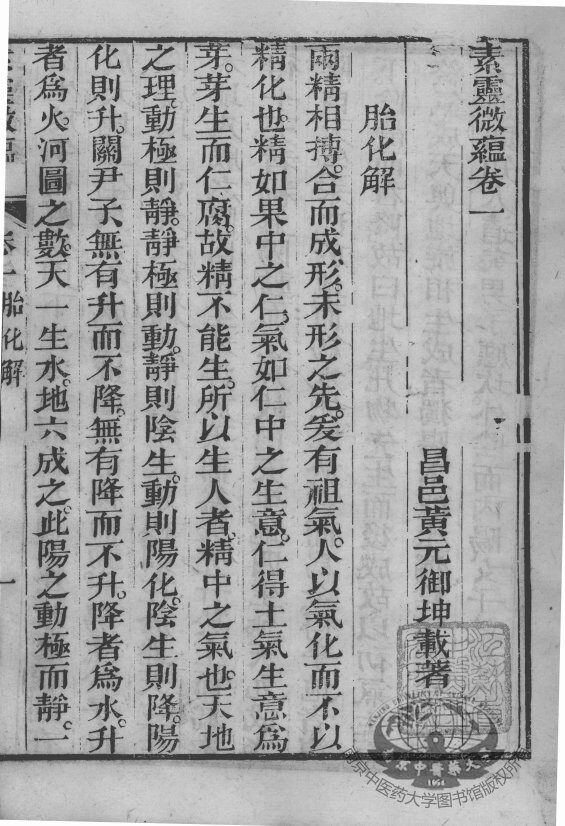 素靈微蘊卷一
昌邑黃元御坤載著
胎化解
兩精相摶。合而成形。未形之先。爰有祖氣。人以氣化而不以
精化也。精如果中之仁。氣如仁中之生意。仁得土氣。生意為
芽。芽生而仁腐。故精不能生。所以生人者。精中之氣也。天地
之理。動極則靜。靜極則動。靜則陰生。動則陽化。陰生則降。陽
化則升。關尹子。無有升而不降。無有降而不升。降者為水。升
者為火。河圖之數。天一生水。地六成之。此陽之動極而靜。一
卷一 胎化解
一
南京中医药大学图书馆版权所有
1954